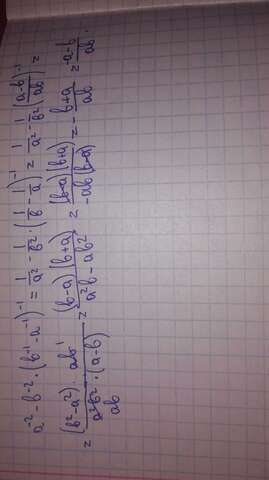 a⁻² - b⁻² · (b⁻¹ - a⁻¹)⁻¹ = 1/a² - 1/b² · (1/b - 1/a)⁻¹ = 1/a² - 1/b² (a-b/ab)⁻¹ =
= (b²-a²) · ab¹ / a²b² · (a-b) ab = (b-a)(b+a) / a²b - ab² = (b-a)(b+a) / -ab(b-a) = - b+a/ab = -a-b/ab.